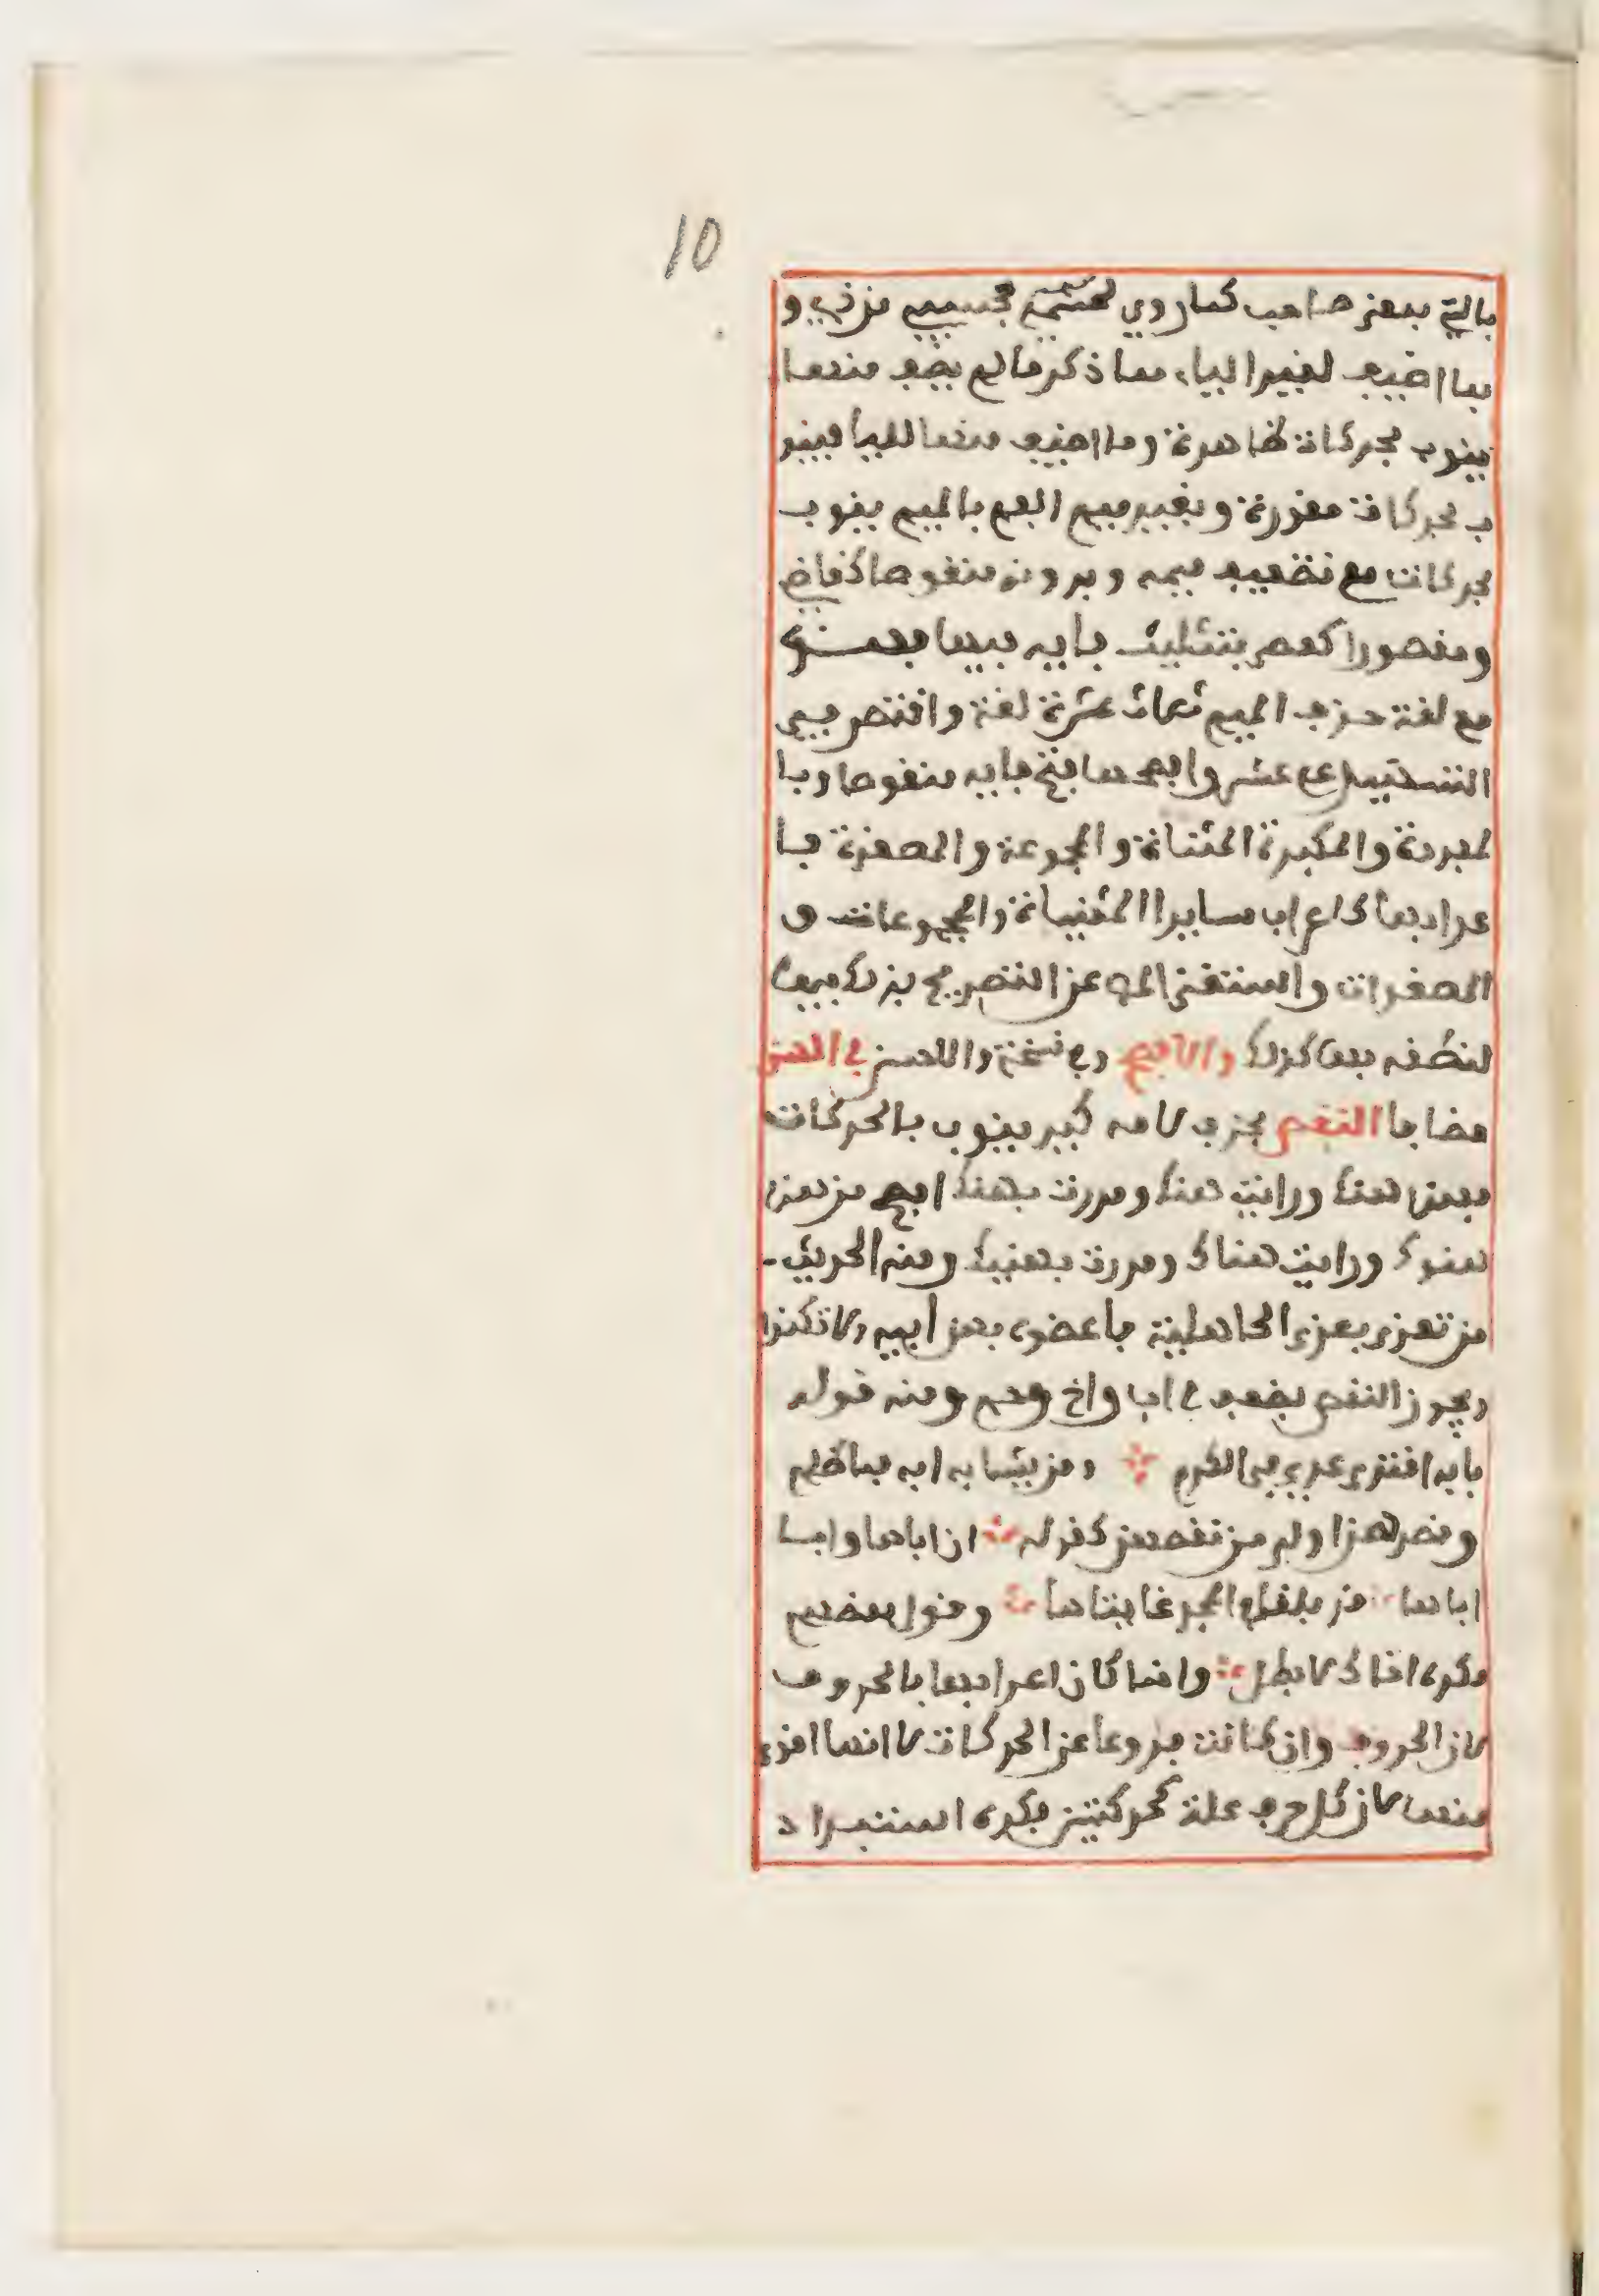 10
بالتي بمعنى صاحب كما روي فحسبي من ذي و
بما اضيف لغير الياء مما ذكر فما لم يضف منها
فيعرب بحركات ظاهرة وما اضيف منها للياء فيعر
ب بحركات مقدرة وبغير ميم الفم بالميم يعرب
بحركات مع تضعيف ميمه وبدونه منقوصا كقاض
ومقصورا كعصى بتثليث فايه فيها
مع لغة حذف الميم ثمان عشرة لغة واقتصر في
التسهيل على عشر وافصحها فتح فايه منقوصا وبا
لمفردة والمكبرة المثناة والمجموعة والمصغرة فا
عرابها كاعراب ساير المثنيات والمجموعات و
المصغرات واستغنى المص عن التصريح بذلك
لنطقه بها كذلك والافصح وفي نسخة والاحسن في الهن
مضافا النقص بحذف لامه فيعرب بالحركات
فهذا هنك ورايت هنك ومررت بهنك افصح من هذا
هنوك ورايت هناك ومررت بهنيك ومنه الحديث
من تعزى بعزى الجاهلية فاعضوه بهن ابيه ولا تكنوا
ويجوز النقص بضعف في اب واخ وحم ومنه قوله
بابه اقتدى عدي في الكرم ∴ ومن يشابه ابه فما ظلم
وقصرها اولى من نقصهن كقوله ∴ ان اباها وابا
اباها ∴ قد بلغا في المجد غايتاها ∴ وقول بعضهم
مكره اخاك لا بطل ∴ وانما كان اعرابها بالحروف
لان الحروف وان كانت فروعا عن الحركات لا انها اقوى
منها لان كل حرف علة كحركتين فكره استبداد